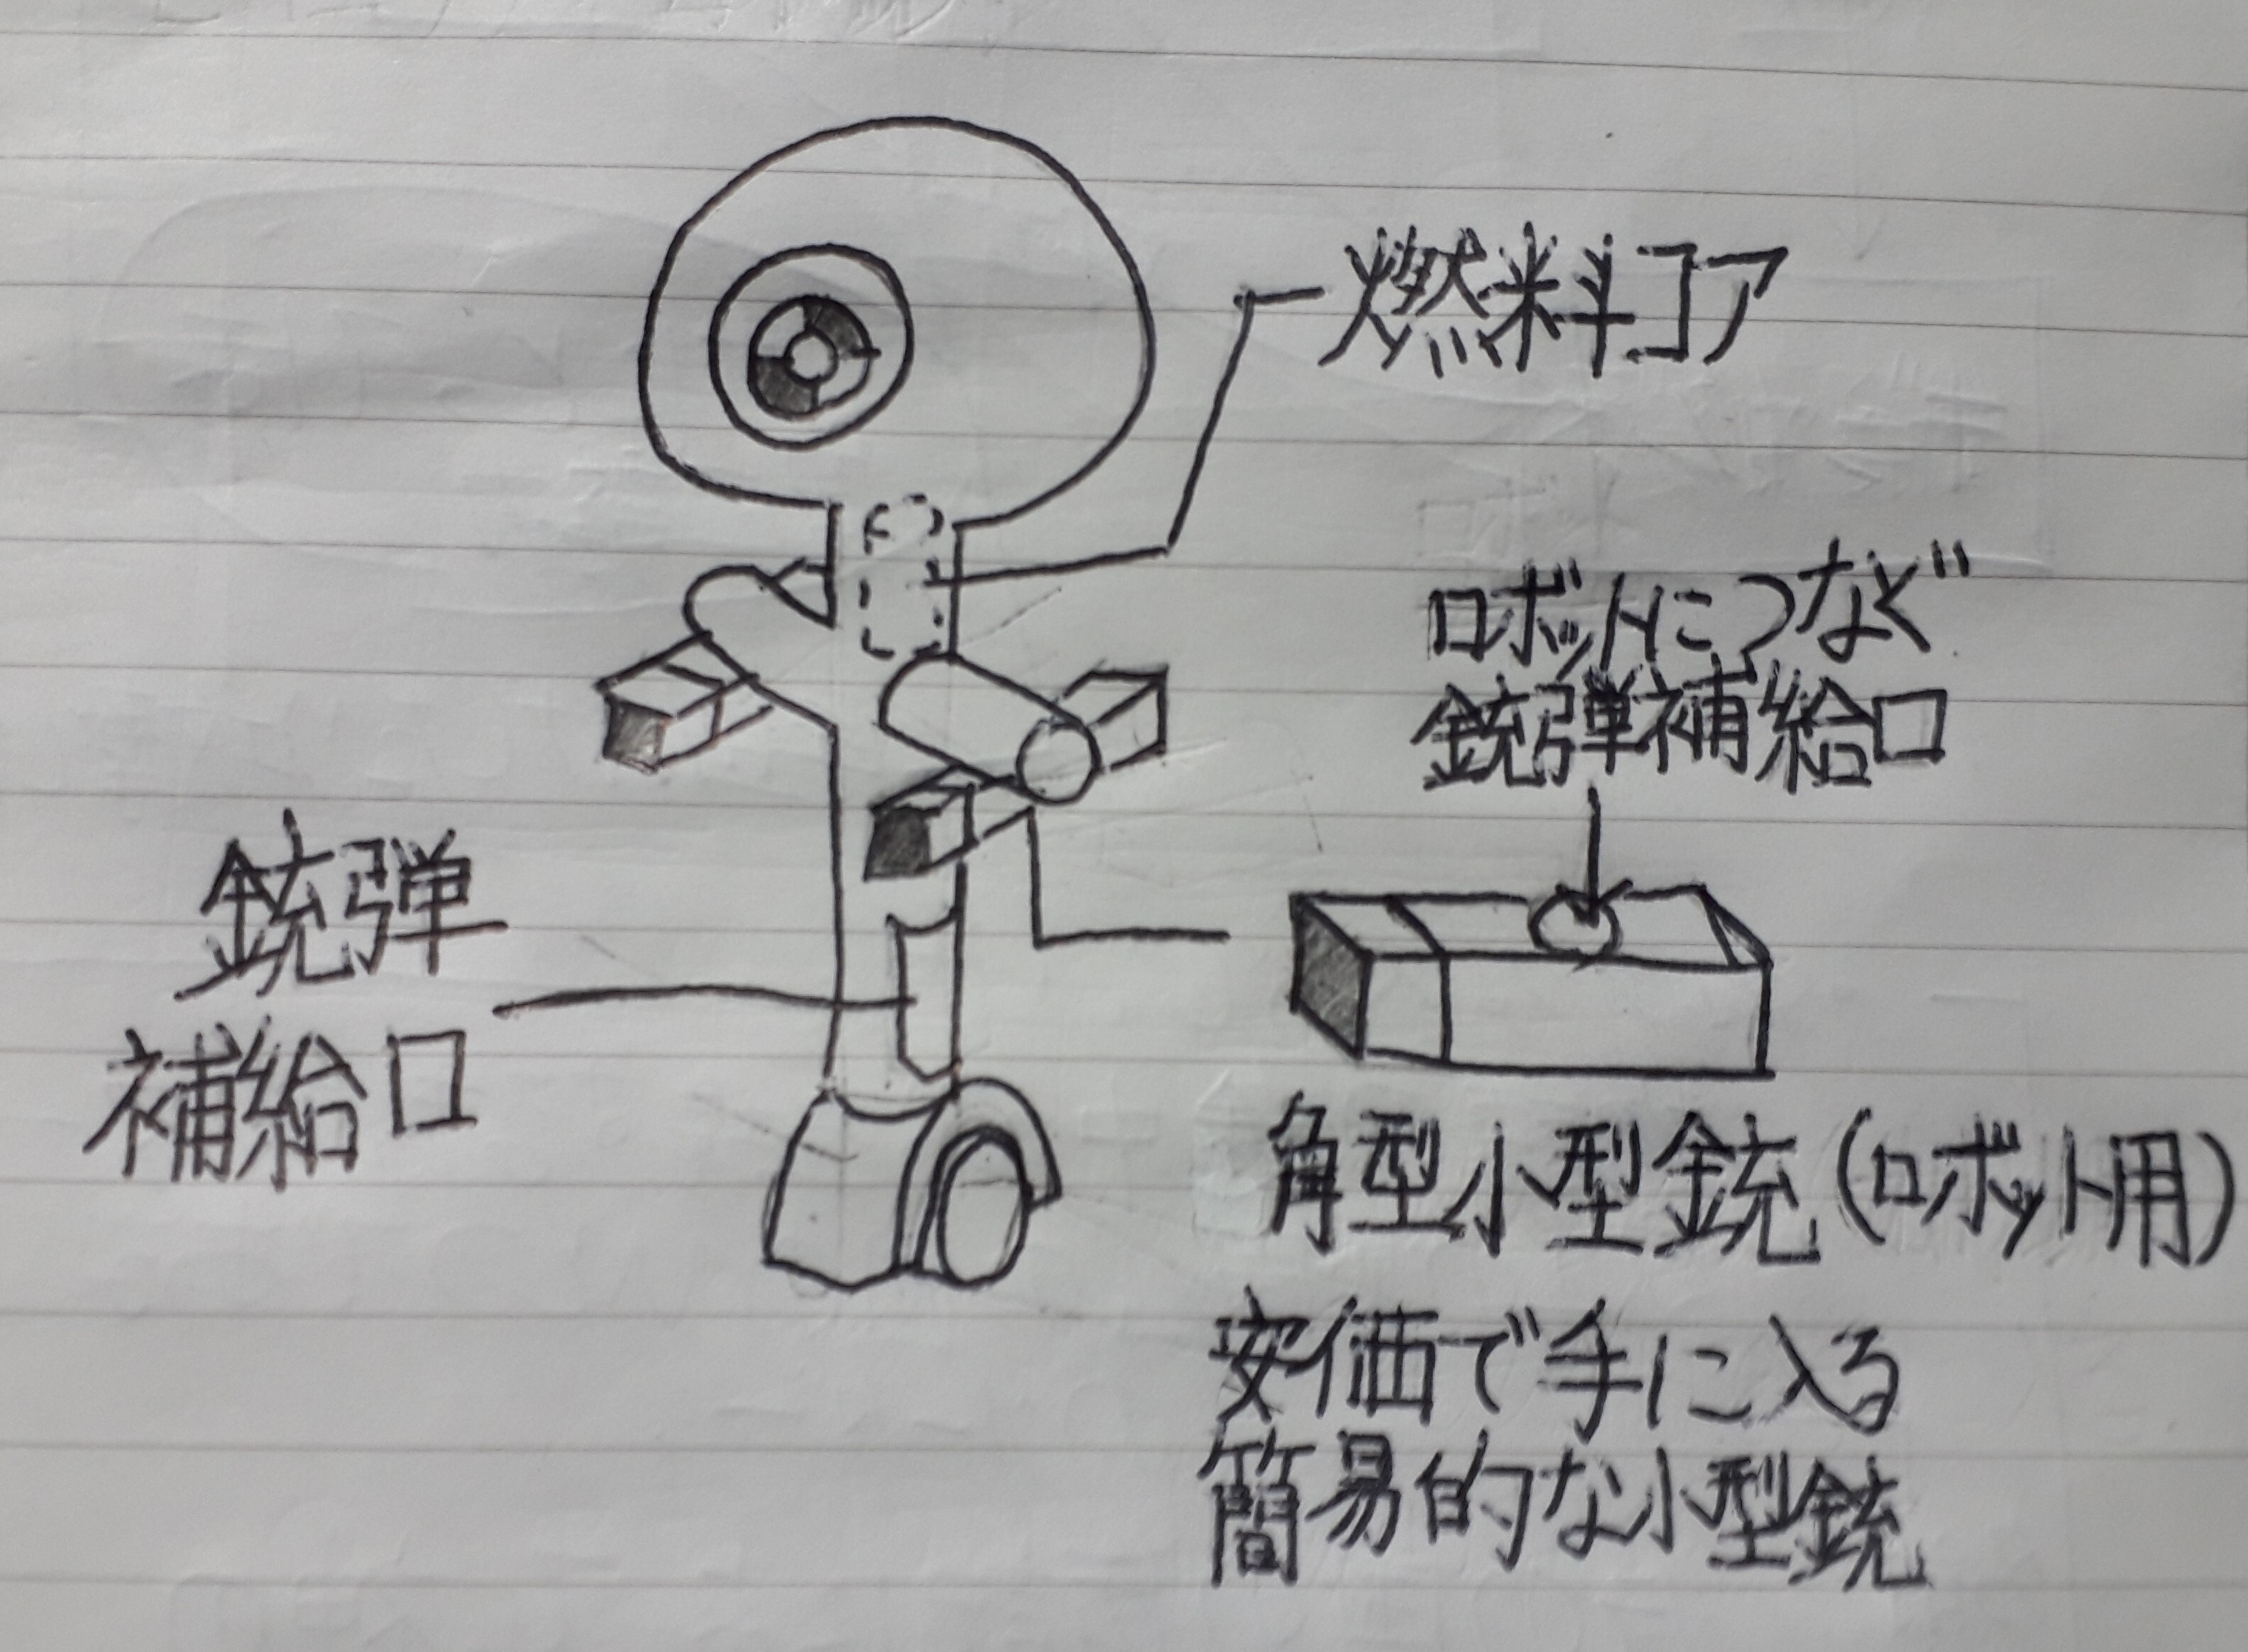 燃料コア
ロボットにつなぐ
銃弾補給口
銃弾
補給口
角型小型銃(ロボット用)
安価で手に入る
簡易的な小型銃